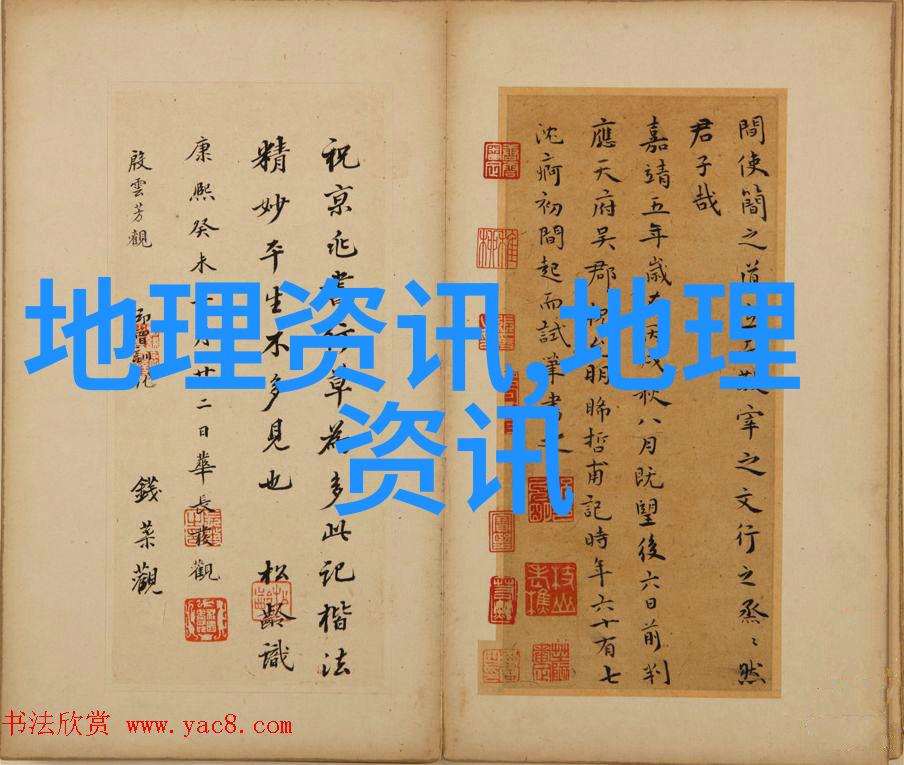 地理资讯,地理
资讯
間使簡之道宰之文行之烝〻然
君子哉
嘉靖五年歲在丙戌秋八月既望後六日前判
應天府吳郡祝允明晞哲甫記時年六十有七
沈痾初間起而試筆書之
祝京兆書行草為多此記楷法
精妙平生不多見也 松齡識
康熙癸未月廿二日華長發觀
殷雲芳觀
錢葇觀
书法欣赏 www.yac8.com